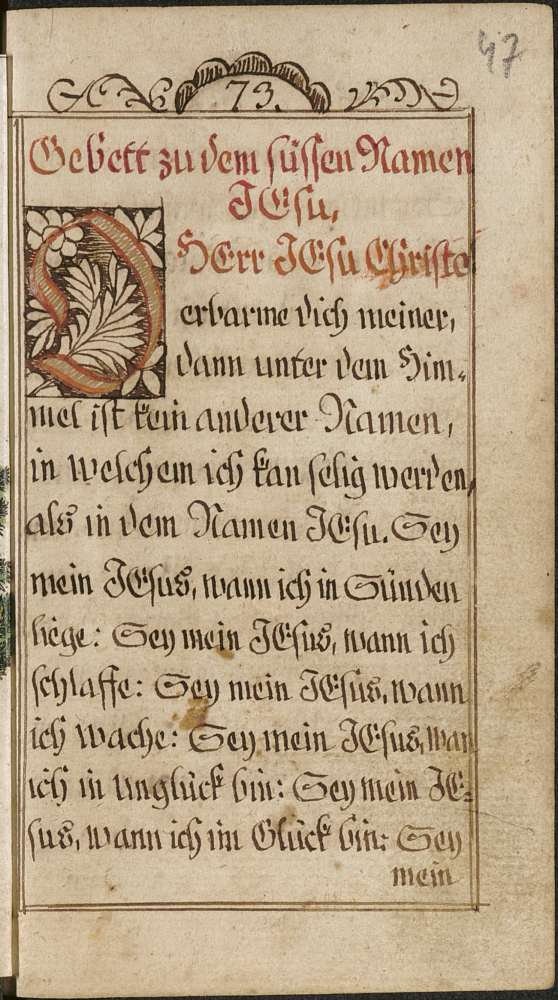 47
73.
Gebett zu dem süssen Namen
JEsu.
O HErr JEsu Christe
erbarme dich meiner,
dann unter dem Him-
mel ist kein anderer Namen,
in welchem ich kan selig werden,
als in dem Namen JEsu. Sey
mein JEsus, wann ich in Sünden
liege: Sey mein JEsus, wann ich
schlaffe: Sey mein JEsus, wann
ich wache: Sey mein JEsus, wan
ich in Unglück bin: Sey mein JE-
sus, wann ich im Glück bin: Sey
mein